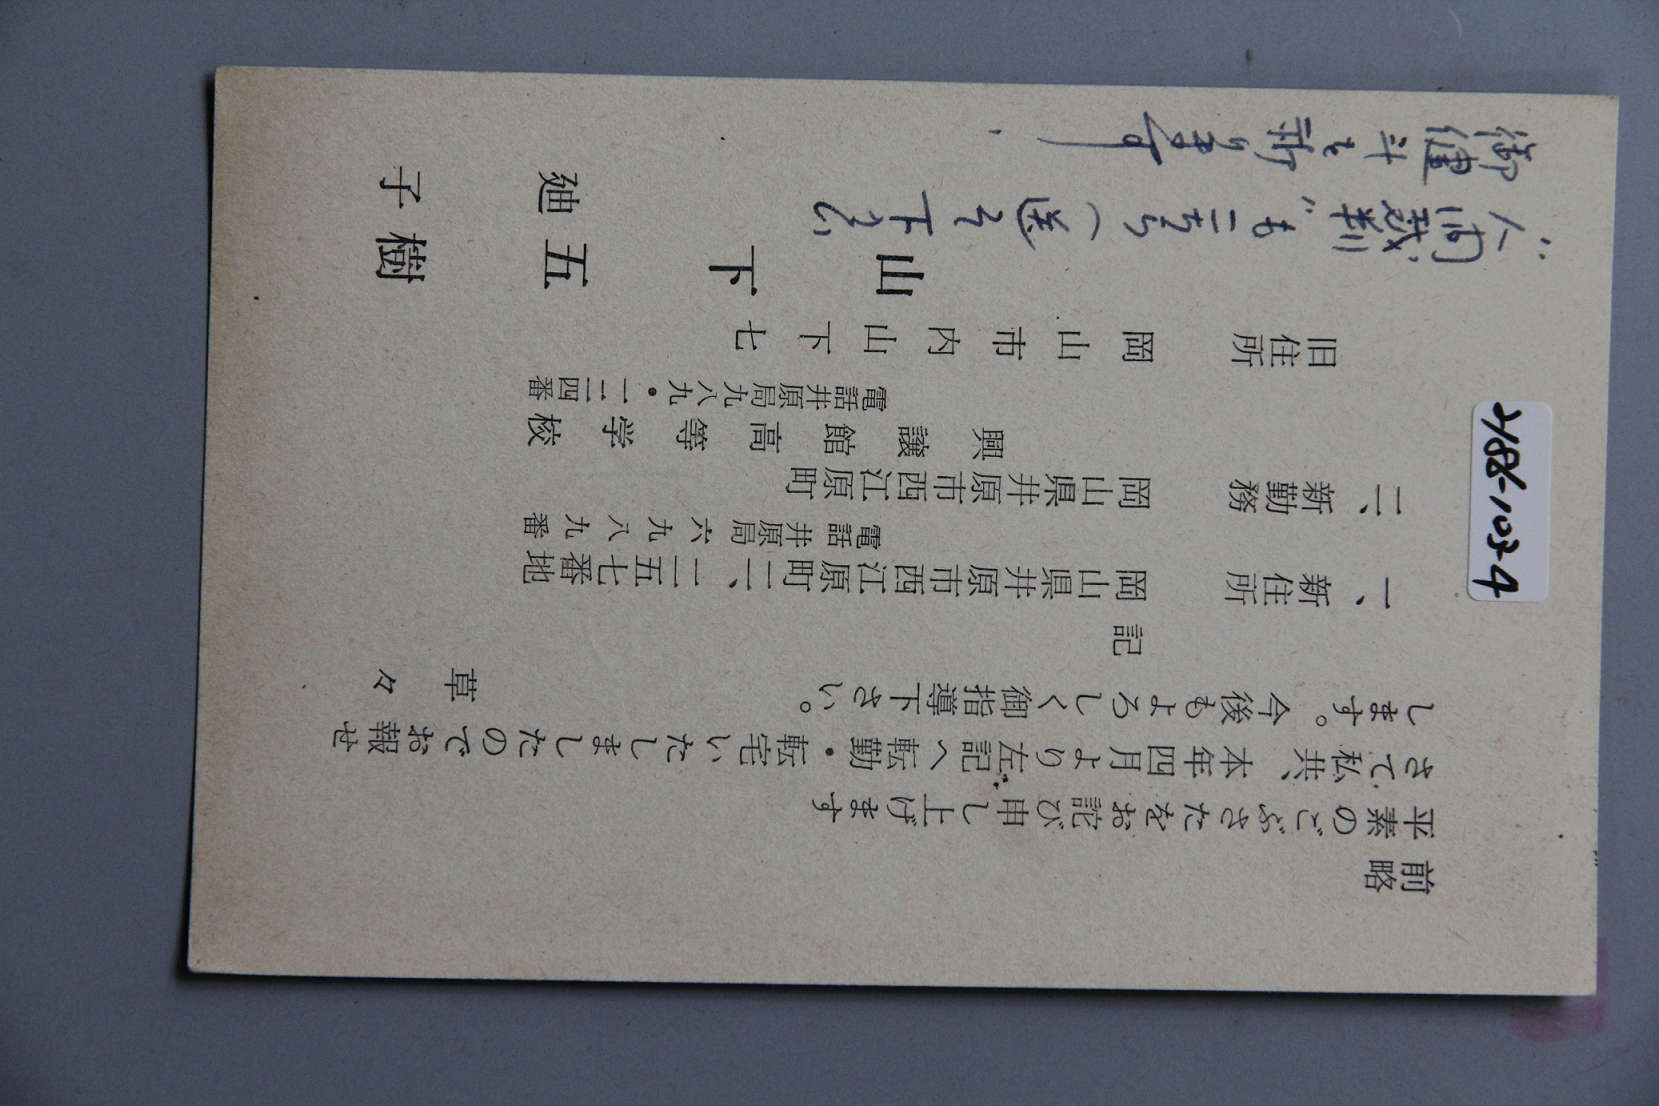 前略
平素のごぶさたをお詑び申し上げます
さて私共、本年四月より左記へ転勤・転宅いたしましたのでお報せ
します。今後もよろしく御指導下さい。
草々
記
一、新住所 岡山県井原市西江原町二、二五七番地
電話井原局六九八九番
二、新勤務 岡山県井原市西江原町
興譲館高等学校
電話井原局九八九・一二四番
旧住所 岡山市内山下七
山下五樹
廸子
〝人间裁判〟もこちらへ送って下さい
御健斗を祈ります.
4186-103-4